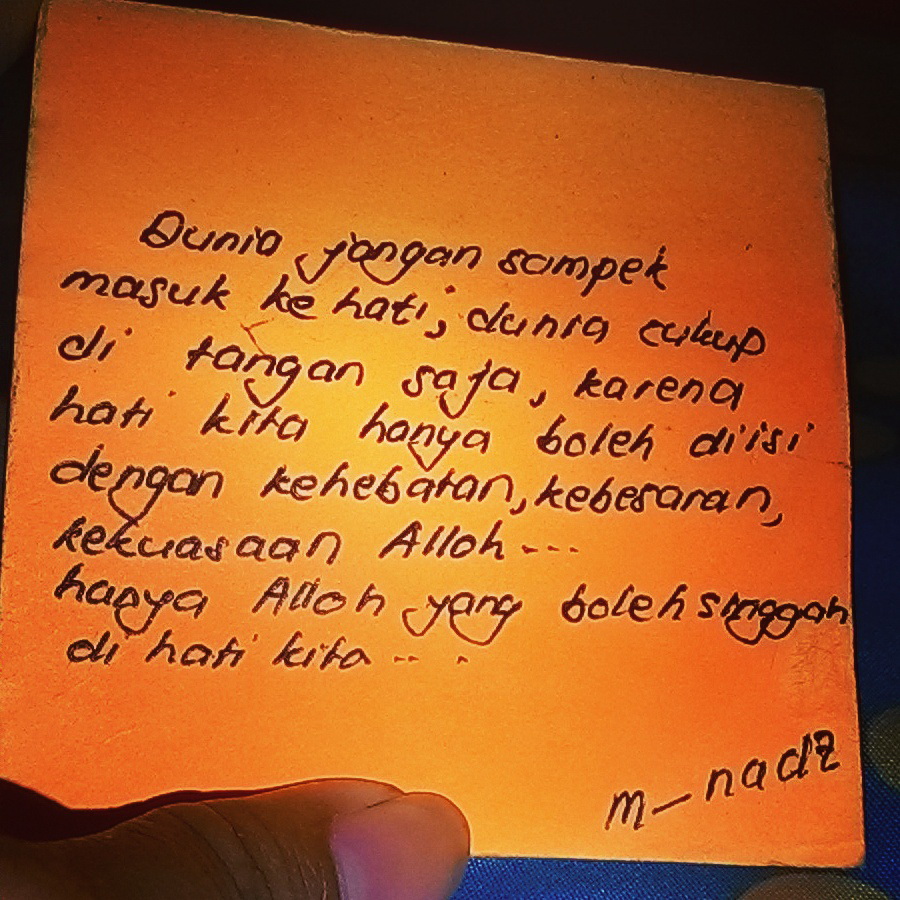 Dunia jangan sampek
masuk ke hati, dunia cukup
di tangan saja, karena
hati kita hanya boleh diisi
dengan kehebatan, kebesaran,
kekuasaan Alloh...
hanya Alloh yang boleh singgah
di hati kita...
m-nadz